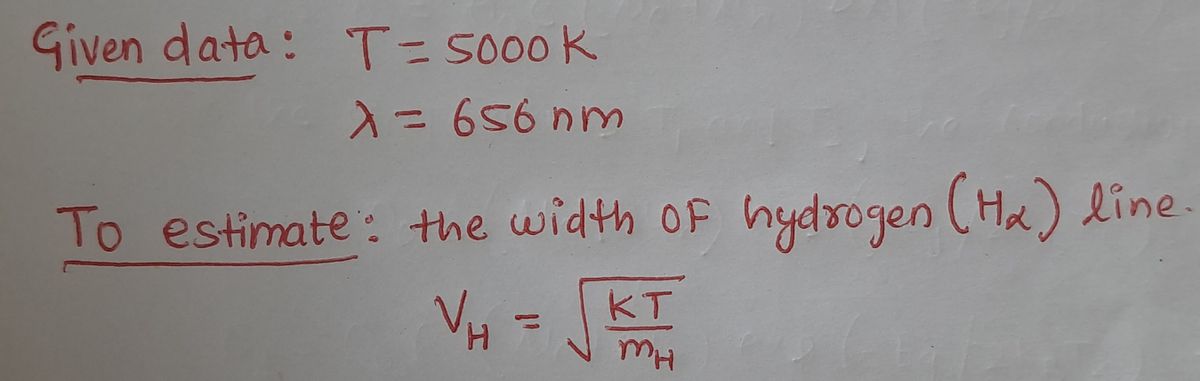 Given data: T = 5000 K
λ = 656 nm
To estimate: the width of hydrogen (Hα) line.
V_H = √(KT/m_H)